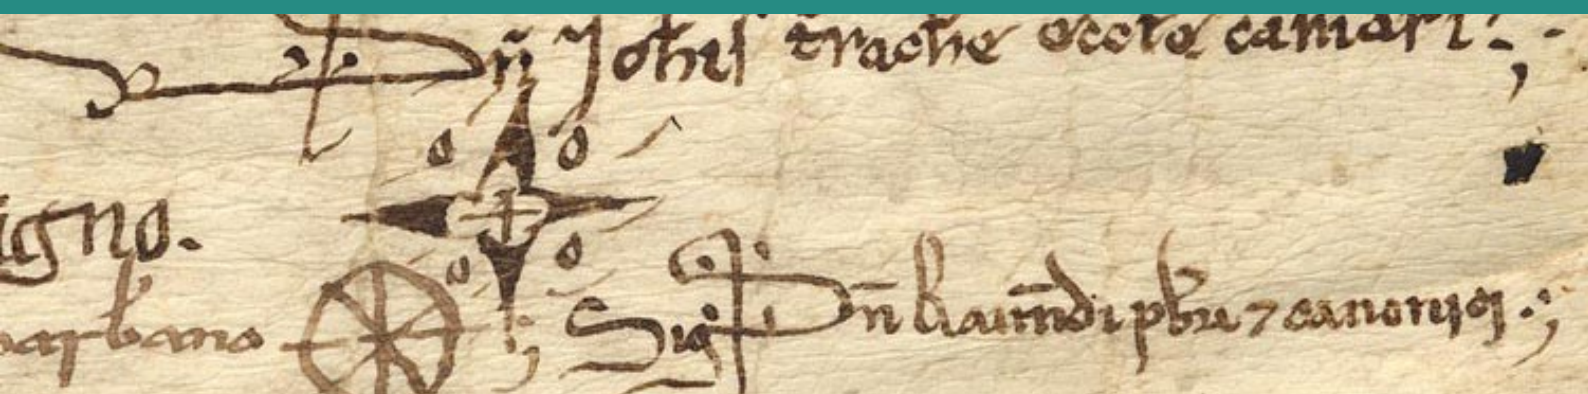 Dn̄ Johis trache eccle camari
igno.
barbano Sig Dn̄ Raimūdi pbri ⁊ canonici